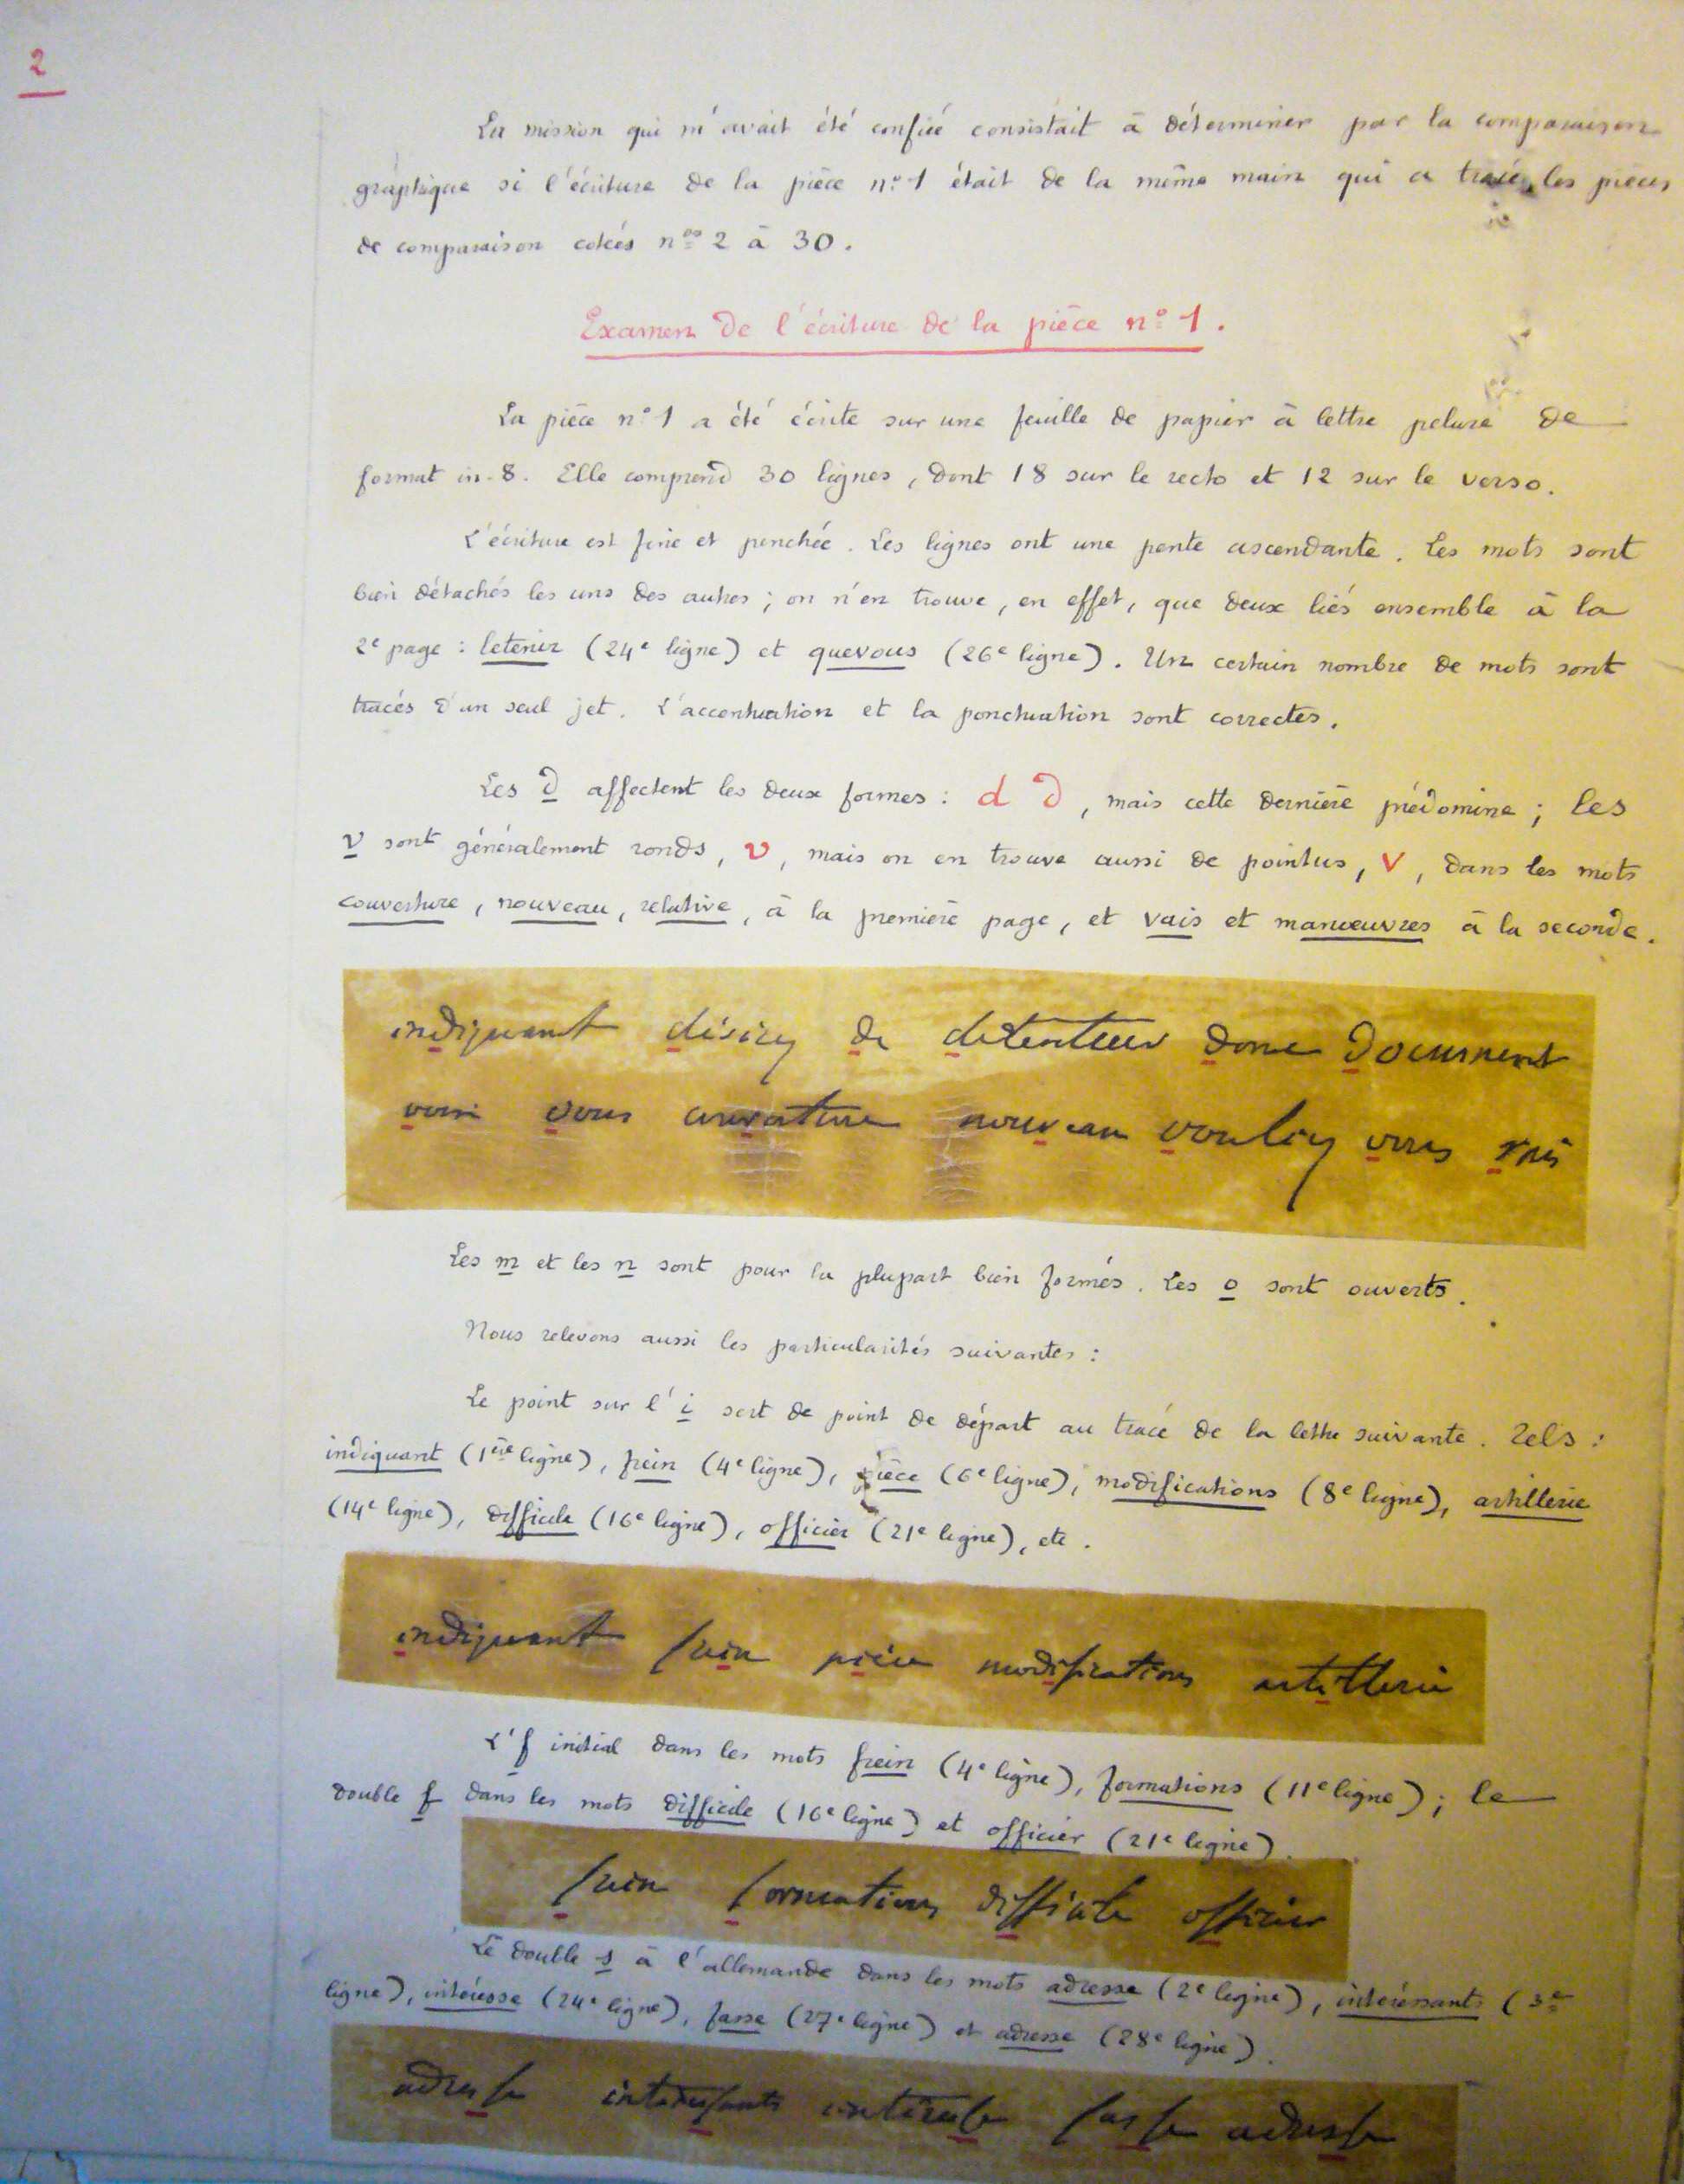 2
La mission qui m'avait été confiée consistait à déterminer par la comparaison
graphique si l'écriture de la pièce n° 1 était de la même main qui a tracé les pièces
de comparaison cotées nos 2 à 30.
Examen de l'écriture de la pièce n° 1.
La pièce n° 1 a été écrite sur une feuille de papier à lettre pelure de
format in-8. Elle comprend 30 lignes, dont 18 sur le recto et 12 sur le verso.
L'écriture est fine et penchée. Les lignes ont une pente ascendante. Les mots sont
bien détachés les uns des autres ; on n'en trouve, en effet, que deux liés ensemble à la
2e page : letenir (24e ligne) et quevous (26e ligne). Un certain nombre de mots sont
tracés d'un seul jet. L'accentuation et la ponctuation sont correctes.
Les d affectent les deux formes : d ∂, mais cette dernière prédomine ; les
v sont généralement ronds, v, mais on en trouve aussi de pointus, v, dans les mots
couverture, nouveau, relative, à la première page, et vais et manœuvres à la seconde.
indiquant désirez de detenteur donc document
voici vous couverture nouveau vouliez vous vais
Les m et les n sont pour la plupart bien formés. Les o sont ouverts.
Nous relevons aussi les particularités suivantes :
Le point sur l'i sert de point de départ au tracé de la lettre suivante. Tels :
indiquant (1ère ligne), frein (4e ligne), pièce (6e ligne), modifications (8e ligne), artillerie
(14e ligne), difficile (16e ligne), officier (21e ligne), etc.
indiquant frein pièce modifications artillerie
L'f initial dans les mots frein (4e ligne), formations (11e ligne) ; le
double f dans les mots difficile (16e ligne) et officier (21e ligne).
frein formations difficile officier
Le double s à l'allemande dans les mots adresse (2e ligne), intéressants (3e
ligne), intéresse (24e ligne), fasse (27e ligne) et adresse (28e ligne).
adresse intéressants intéresse fasse adresse